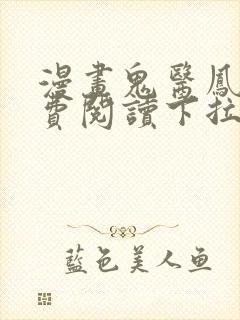 漫畫鬼醫鳳
費閱讀下拉
藍色美人鱼